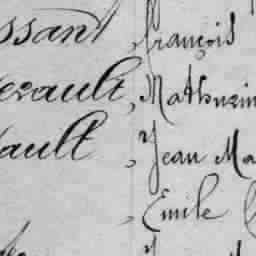 ssant, françois
erault, Mathurin
ault, Jean Ma
, Emile